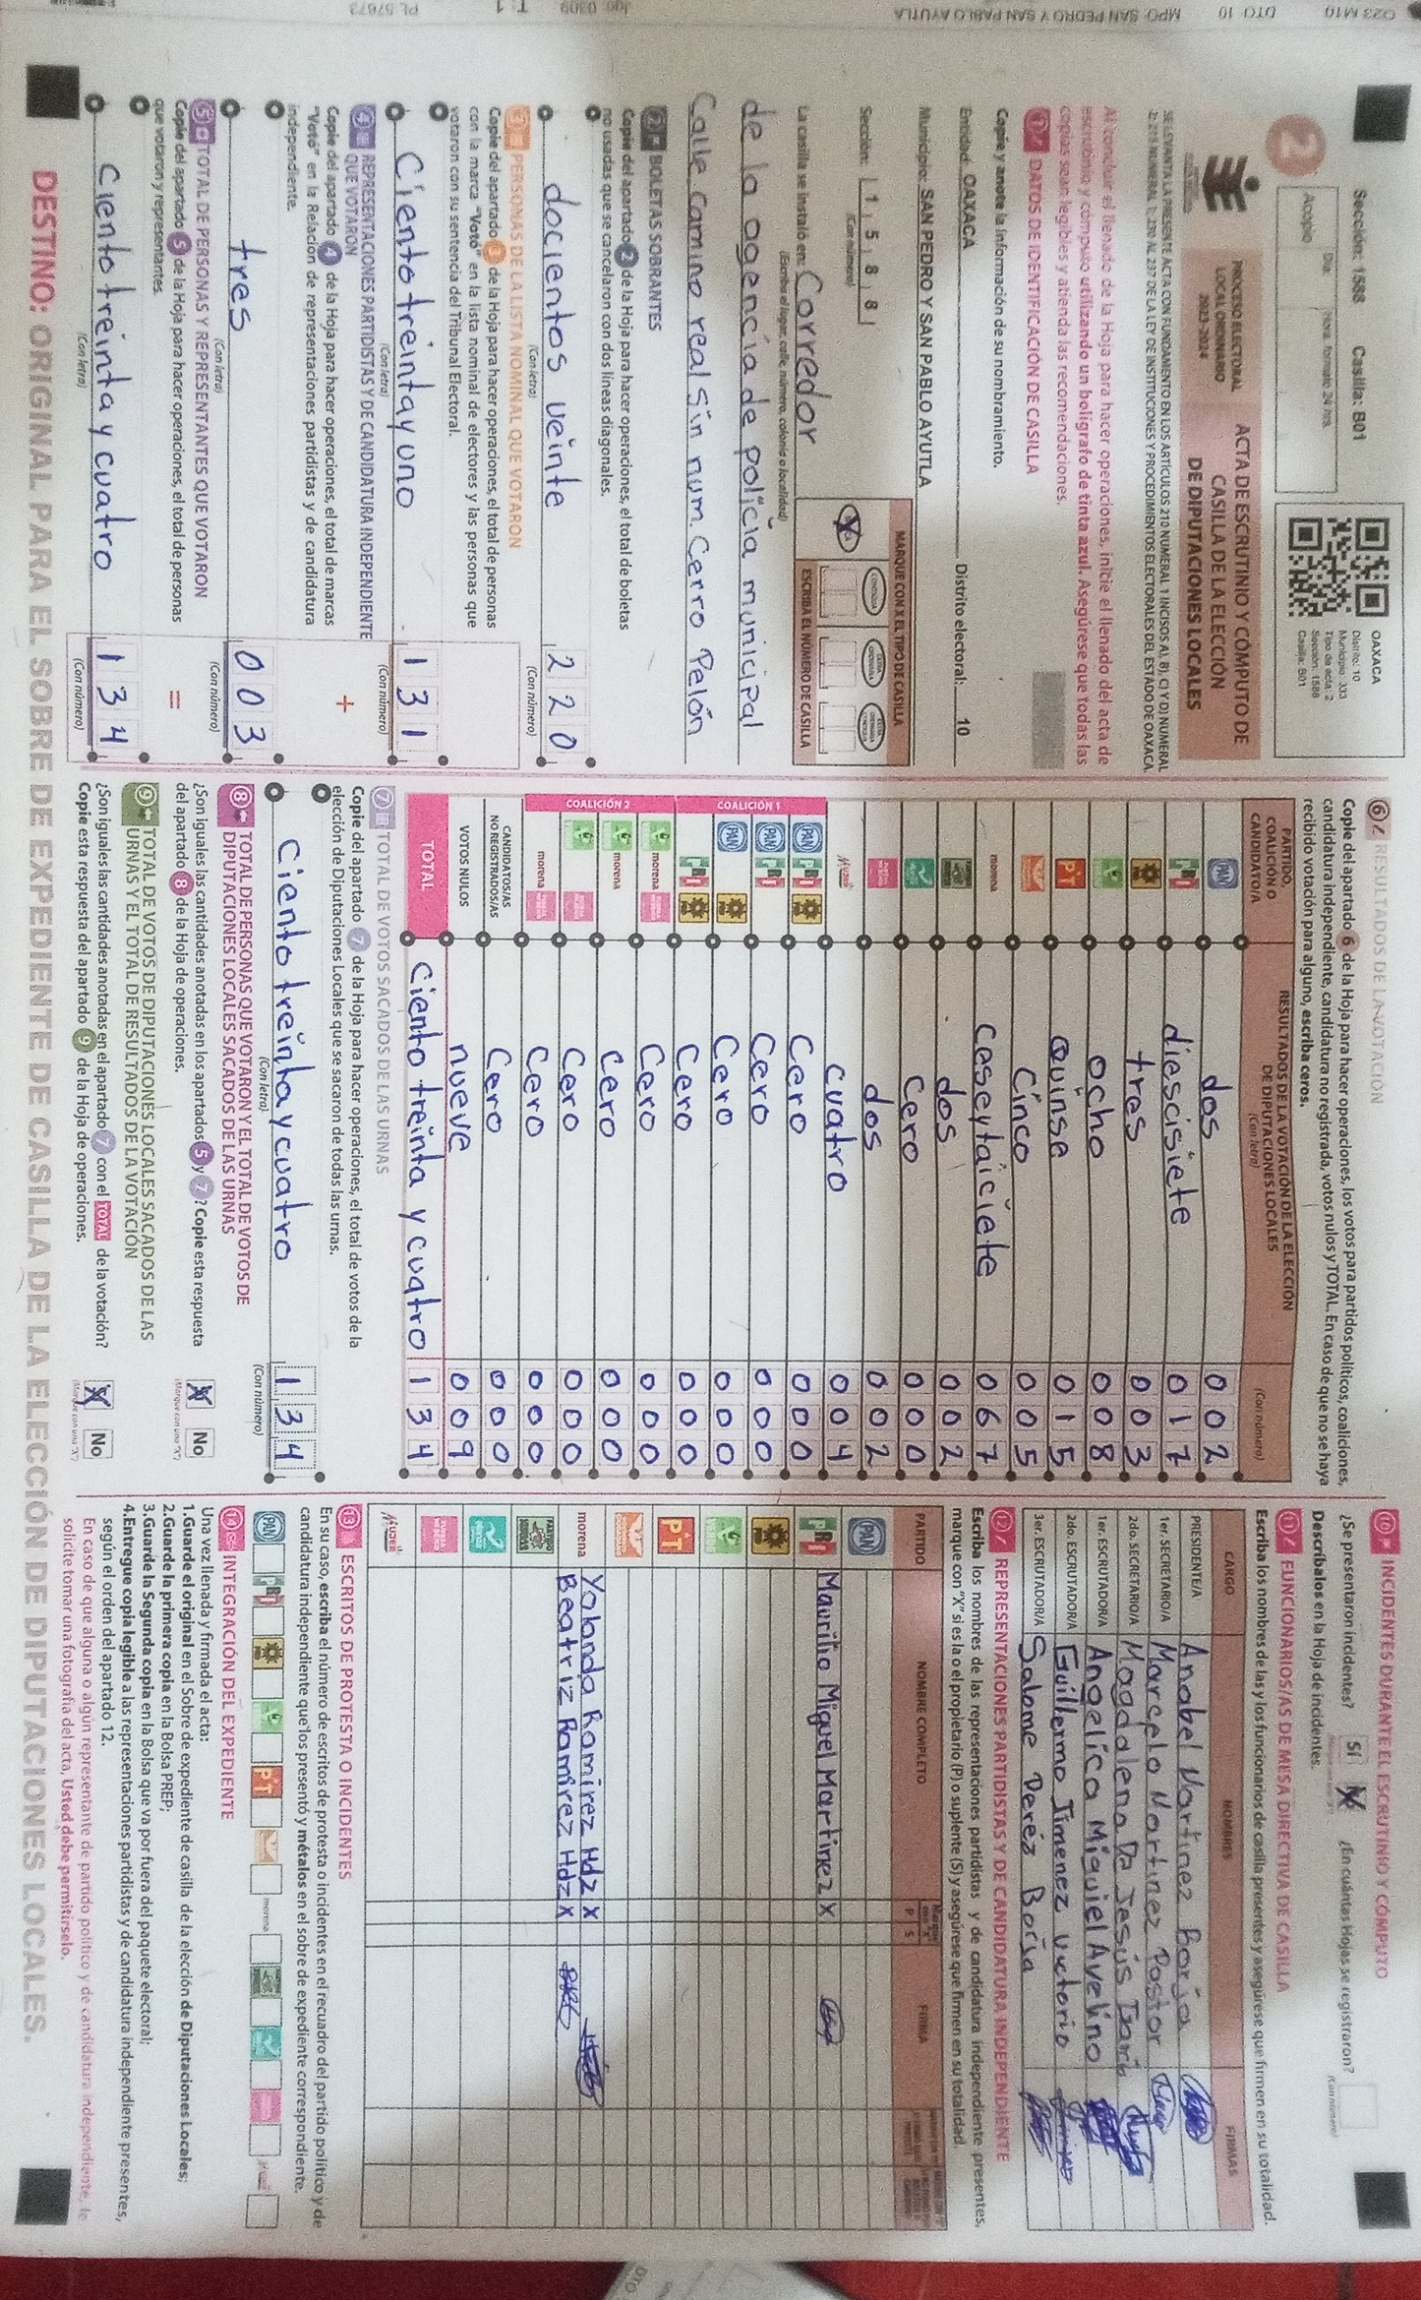 Sección: 1588 Casilla: B01
2
Acopio
Día:
Hora: formato 24 hrs.
OAXACA
Distrito: 10
Municipio: 333
Tipo de acta: 2
Sección: 1588
Casilla: B01
PROCESO ELECTORAL
LOCAL ORDINARIO
2023-2024
ACTA DE ESCRUTINIO Y CÓMPUTO DE
CASILLA DE LA ELECCIÓN
DE DIPUTACIONES LOCALES
SE LEVANTA LA PRESENTE ACTA CON FUNDAMENTO EN LOS ARTÍCULOS 210 NUMERAL 1 INCISOS A), B), C) Y D) NUMERAL
DE LA LEY DE INSTITUCIONES Y PROCEDIMIENTOS ELECTORALES DEL ESTADO DE OAXACA.
Al concluir el llenado de la Hoja para hacer operaciones, inicie el llenado del acta de
escrutinio y cómputo utilizando un bolígrafo de tinta azul. Asegúrese que todas las
copias sean legibles y atienda las recomendaciones.
1 DATOS DE IDENTIFICACIÓN DE CASILLA
Copie y anote la información de su nombramiento.
Entidad: OAXACA Distrito electoral: 10
Municipio: SAN PEDRO Y SAN PABLO AYUTLA
Sección: 1 5 8 8
(Con número)
MARQUE CON X EL TIPO DE CASILLA
ESCRIBA EL NÚMERO DE CASILLA
La casilla se instaló en: Corredor
(Escriba el lugar, calle, número, colonia o localidad)
de la agencia de policía municipal
Calle Camino real sin num. Cerro Pelón
2 BOLETAS SOBRANTES
Copie del apartado 2 de la Hoja para hacer operaciones, el total de boletas
no usadas que se cancelaron con dos líneas diagonales.
docientos veinte 2 2 0
(Con letra) (Con número)
3 PERSONAS DE LA LISTA NOMINAL QUE VOTARON
Copie del apartado 3 de la Hoja para hacer operaciones, el total de personas
con la marca "Votó" en la lista nominal de electores y las personas que
votaron con su sentencia del Tribunal Electoral.
Ciento treinta y uno 1 3 1
(Con letra) (Con número)
4 REPRESENTACIONES PARTIDISTAS Y DE CANDIDATURA INDEPENDIENTE
QUE VOTARON
Copie del apartado 4 de la Hoja para hacer operaciones, el total de marcas
"Votó" en la Relación de representaciones partidistas y de candidatura
independiente.
+
tres 0 0 3
(Con letra) (Con número)
5 TOTAL DE PERSONAS Y REPRESENTANTES QUE VOTARON
Copie del apartado 5 de la Hoja para hacer operaciones, el total de personas
que votaron y representantes.
=
Ciento treinta y cuatro 1 3 4
(Con letra) (Con número)
6 RESULTADOS DE LA VOTACIÓN
Copie del apartado 6 de la Hoja para hacer operaciones, los votos para partidos políticos, coaliciones,
candidatura independiente, candidatura no registrada, votos nulos y TOTAL. En caso de que no se haya
recibido votación para alguno, escriba ceros.
PARTIDO,
COALICIÓN O
CANDIDATO/A
RESULTADOS DE LA VOTACIÓN DE LA ELECCIÓN
DE DIPUTACIONES LOCALES
(Con letra) (Con número)
PAN dos 0 0 2
PRI diescisiete 0 1 7
PRD tres 0 0 3
ocho 0 0 8
PT Quinse 0 1 5
Cinco 0 0 5
morena Caseytaiciete 0 6 7
dos 0 0 2
Cero 0 0 0
dos 0 0 2
cuatro 0 0 4
COALICIÓN 1
PAN PRI PRD Cero 0 0 0
PAN PRI Cero 0 0 0
PAN PRD Cero 0 0 0
PRI PRD Cero 0 0 0
COALICIÓN 2
morena Cero 0 0 0
morena Cero 0 0 0
Cero 0 0 0
morena Cero 0 0 0
CANDIDATOS/AS
NO REGISTRADOS/AS Cero 0 0 0
VOTOS NULOS nueve 0 0 9
TOTAL Ciento treinta y cuatro 1 3 4
7 TOTAL DE VOTOS SACADOS DE LAS URNAS
Copie del apartado 7 de la Hoja para hacer operaciones, el total de votos de la
elección de Diputaciones Locales que se sacaron de todas las urnas.
Ciento treinta y cuatro 1 3 4
(Con letra) (Con número)
8 TOTAL DE PERSONAS QUE VOTARON Y EL TOTAL DE VOTOS DE
DIPUTACIONES LOCALES SACADOS DE LAS URNAS
¿Son iguales las cantidades anotadas en los apartados 5 y 7? Copie esta respuesta
del apartado 8 de la Hoja de operaciones.
X No
(Marque con una "X")
9 TOTAL DE VOTOS DE DIPUTACIONES LOCALES SACADOS DE LAS
URNAS Y EL TOTAL DE RESULTADOS DE LA VOTACIÓN
¿Son iguales las cantidades anotadas en el apartado 7 con el TOTAL de la votación?
Copie esta respuesta del apartado 9 de la Hoja de operaciones.
X No
(Marque con una "X")
10 INCIDENTES DURANTE EL ESCRUTINIO Y CÓMPUTO
¿Se presentaron incidentes? SÍ X ¿En cuántas Hojas se registraron?
(Con número)
Descríbalos en la Hoja de incidentes.
11 FUNCIONARIOS/AS DE MESA DIRECTIVA DE CASILLA
Escriba los nombres de las y los funcionarios de casilla presentes y asegúrese que firmen en su totalidad.
CARGO NOMBRES FIRMAS
PRESIDENTE/A Anabel Martinez Borja
1er. SECRETARIO/A Marcelo Martinez Pastor
2do. SECRETARIO/A Magdalena De Jesús
1er. ESCRUTADOR/A Angelica Miguiel Avelino
2do. ESCRUTADOR/A Guillermo Jimenez Victorio
3er. ESCRUTADOR/A Salome Perez Borja
12 REPRESENTACIONES PARTIDISTAS Y DE CANDIDATURA INDEPENDIENTE
Escriba los nombres de las representaciones partidistas y de candidatura independiente presentes,
marque con "X" si es la o el propietario (P) o suplente (S) y asegúrese que firmen en su totalidad.
PARTIDO NOMBRE COMPLETO P S FIRMA
PAN
PRI Maurilio Miguel Martinez X
PRD
PT
morena Yolanda Ramirez Hdz X
Beatriz Ramirez Hdz X
13 ESCRITOS DE PROTESTA O INCIDENTES
En su caso, escriba el número de escritos de protesta o incidentes en el recuadro del partido político y de
candidatura independiente que los presentó y métalos en el sobre de expediente correspondiente.
PAN PRI PRD PT morena
14 INTEGRACIÓN DEL EXPEDIENTE
Una vez llenada y firmada el acta:
1.Guarde el original en el Sobre de expediente de casilla de la elección de Diputaciones Locales;
2.Guarde la primera copia en la Bolsa PREP;
3.Guarde la Segunda copia en la Bolsa que va por fuera del paquete electoral;
4.Entregue copia legible a las representaciones partidistas y de candidatura independiente presentes,
según el orden del apartado 12.
En caso de que alguna o algún representante de partido político y de candidatura independiente, le
solicite tomar una fotografía del acta, Usted debe permitírselo.
DESTINO: ORIGINAL PARA EL SOBRE DE EXPEDIENTE DE CASILLA DE LA ELECCIÓN DE DIPUTACIONES LOCALES.
023 M10 DTO 10 MPO: SAN PEDRO Y SAN PABLO AYUTLA Jgo: 0309 T: 1 PL 57673